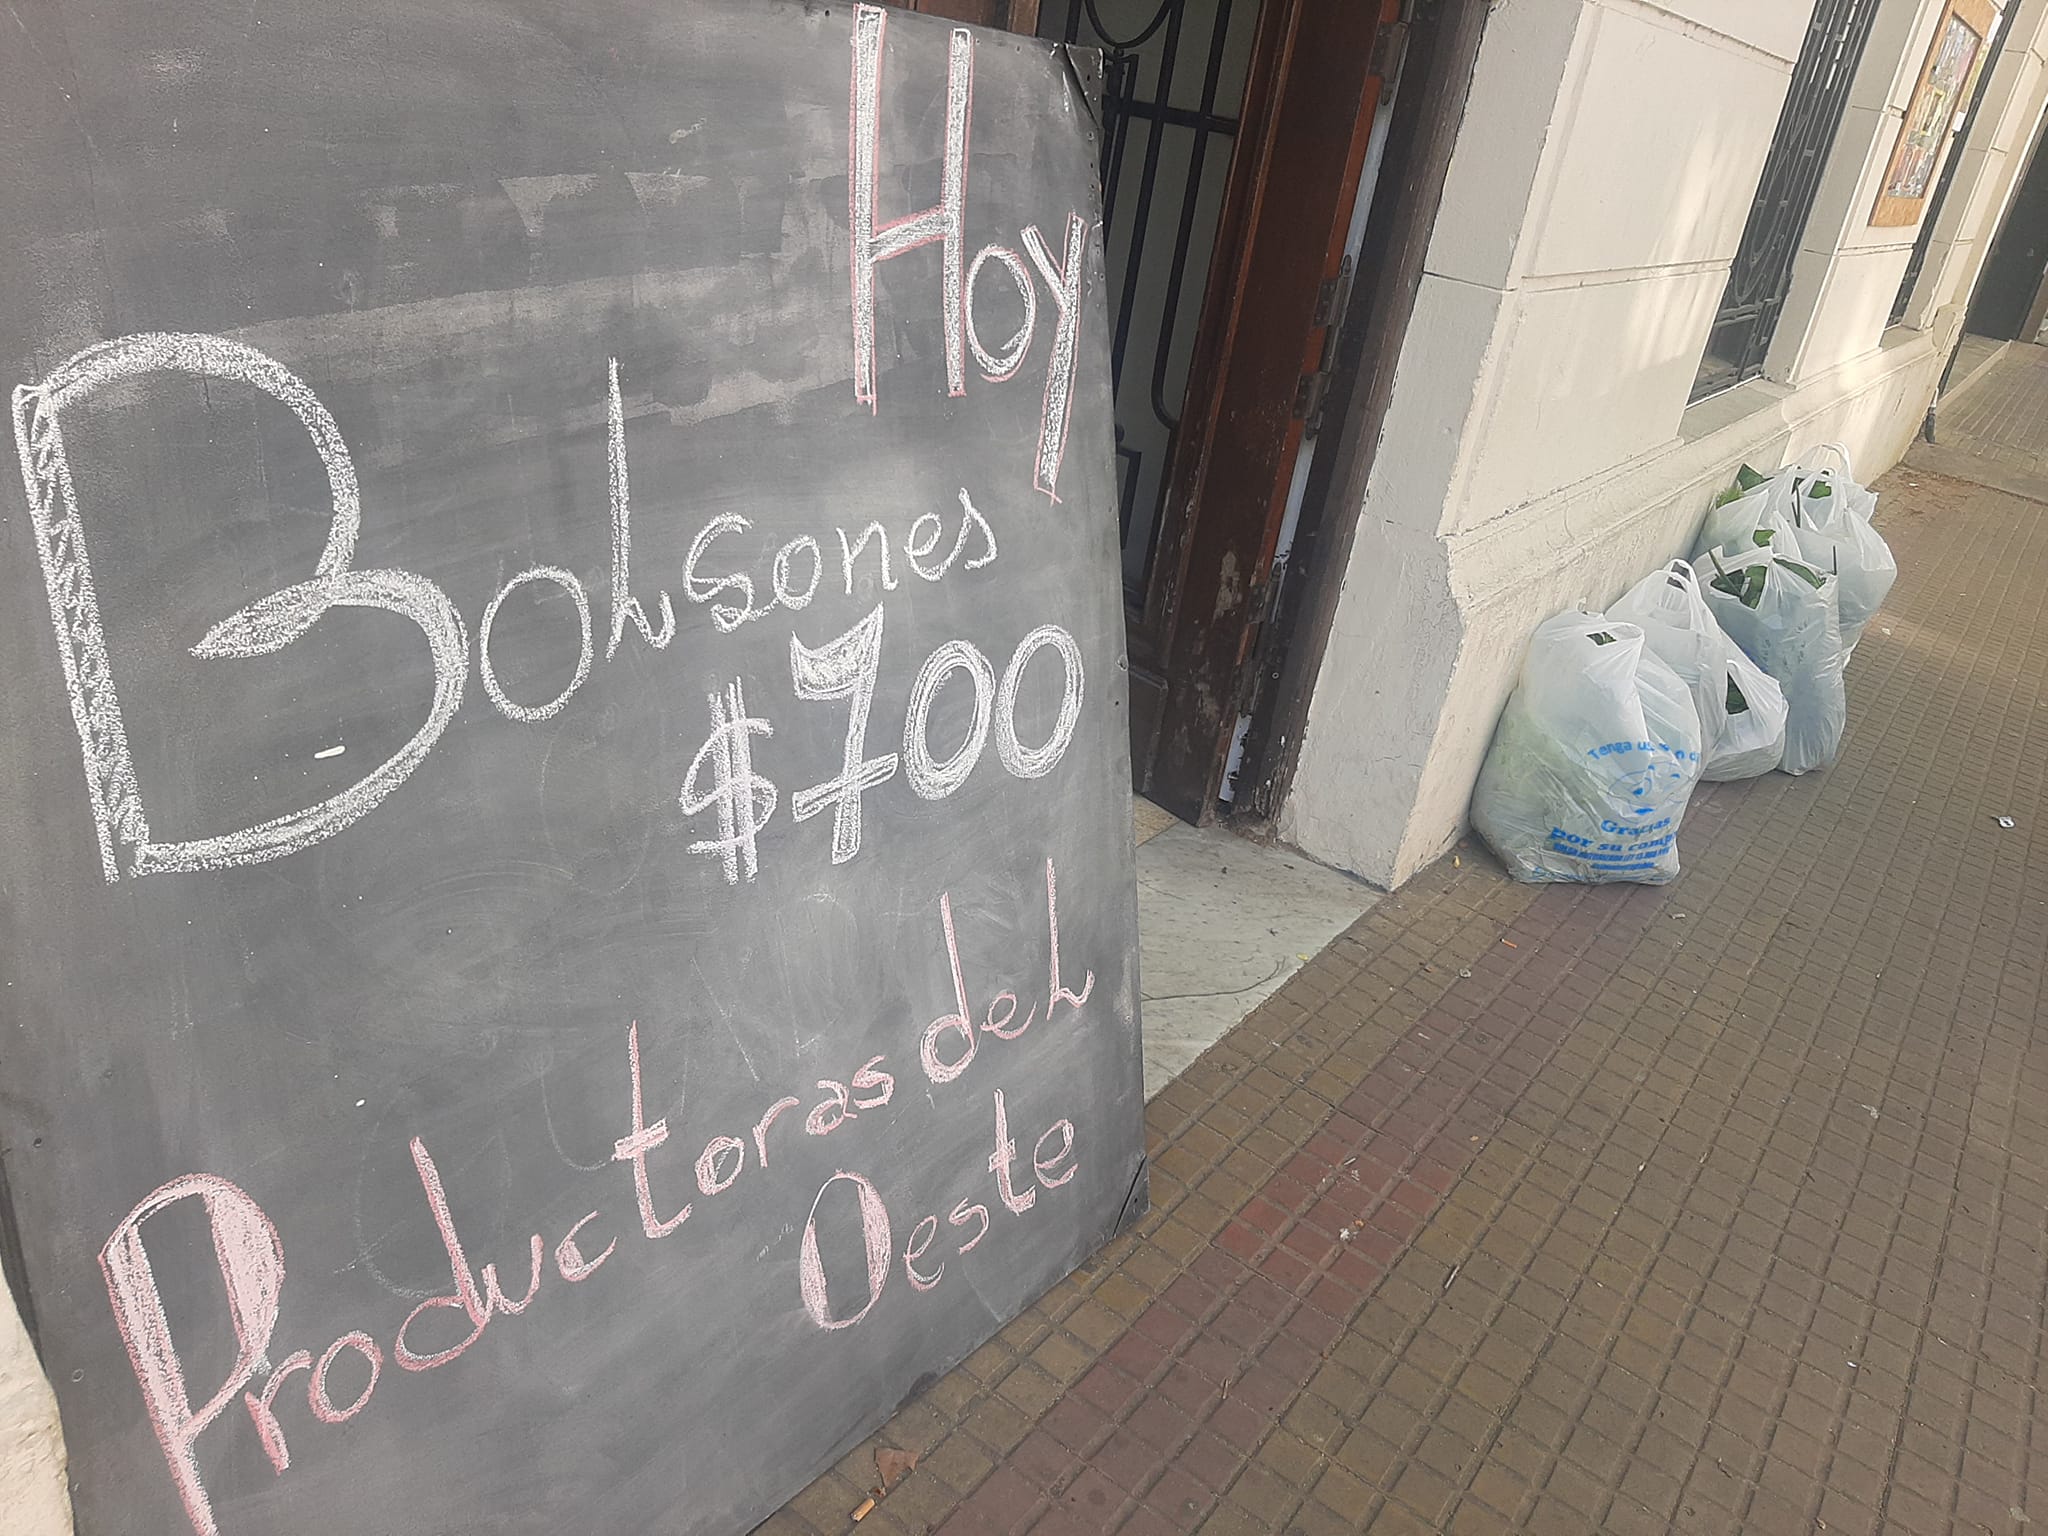 Hoy
Bolsones
$700
Productoras del
Oeste
Tenga
Gracias
por su